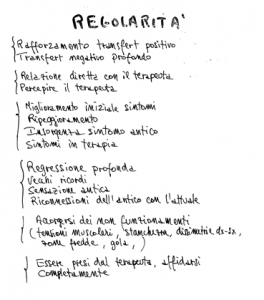 REGOLARITA'
Rafforzamento transfert positivo
Transfert negativo profondo
Relazione diretta con il terapeuta
Percepire il terapeuta
Miglioramento iniziale sintomi
Ripeggioramento
Insorgenza sintomo antico
Sintomi in terapia
Regressione profonda
Vecchi ricordi
Sensazione antica
Riconnessioni dell'antico con l'attuale
Accorgersi dei non funzionamenti
(tensioni muscolari, stanchezza, dissimetrie ds-sx,
zone fredde, gola,)
Essere presi dal terapeuta, affidarsi
Completamente